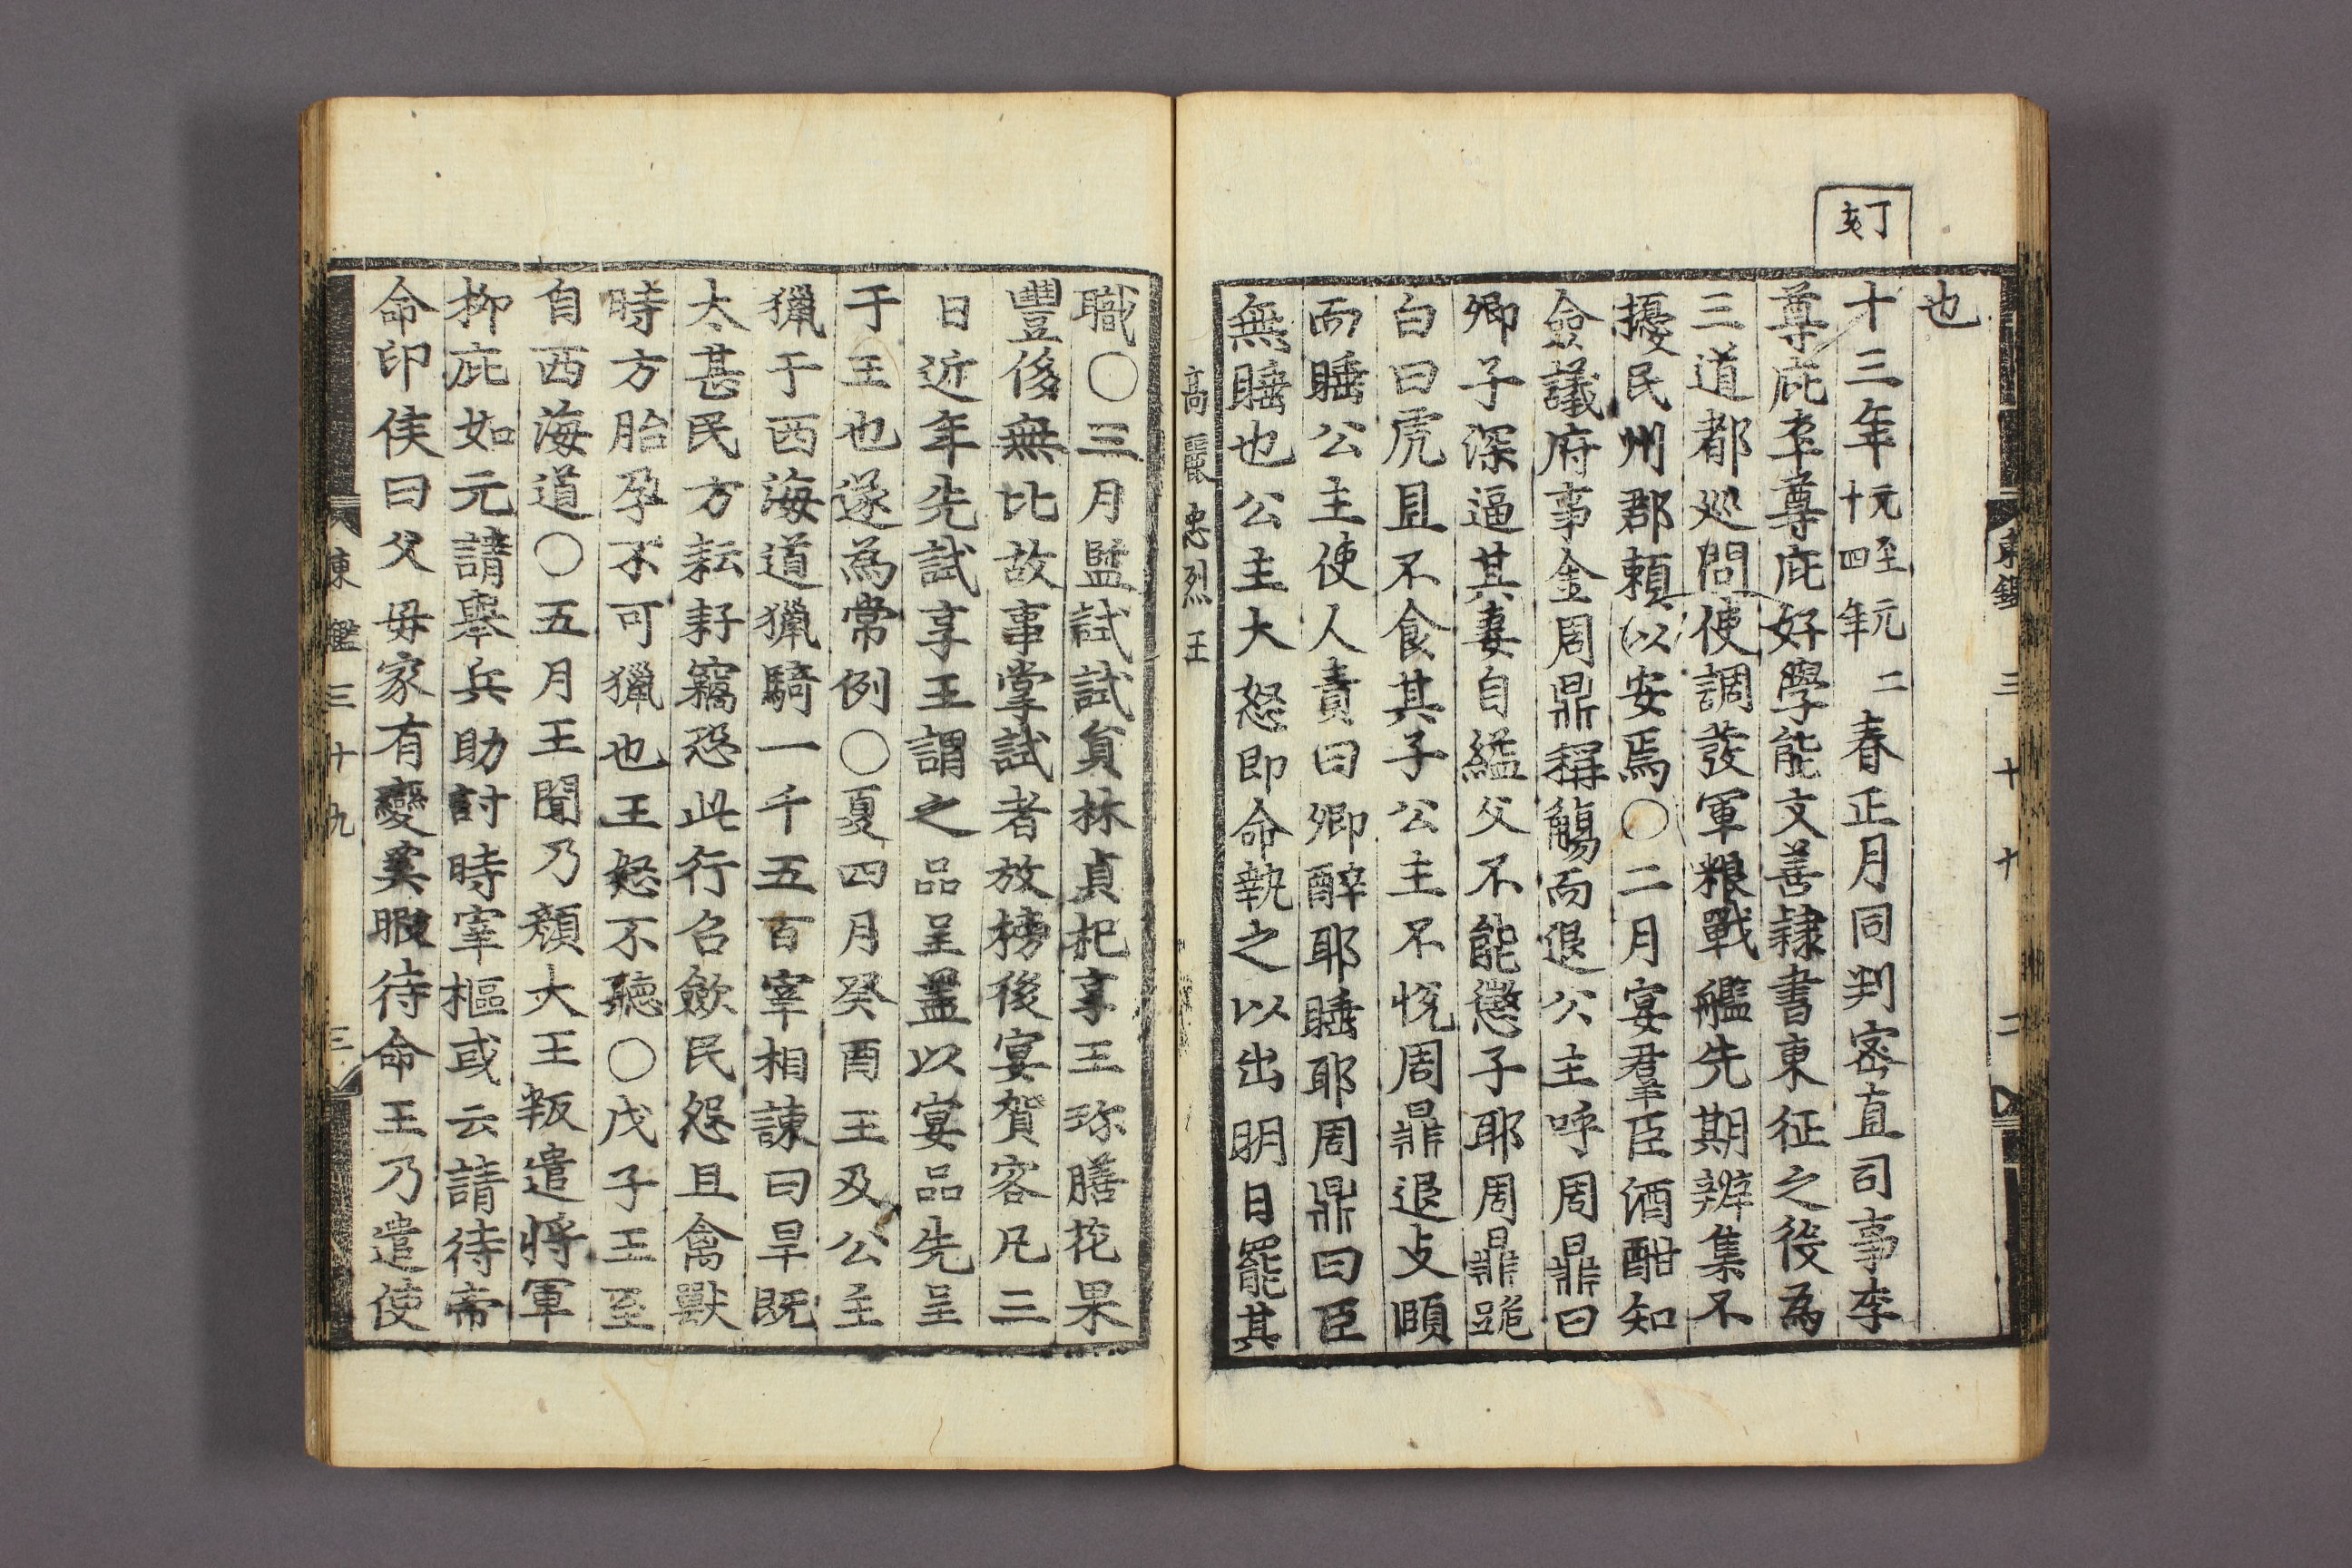 丁亥
也
十三年元至元二十四年春正月同判密直司事李
尊庇卒尊庇好學能文善隷書東征之役為
三道都廵問使調發軍粮戰艦先期辨集不
擾民州郡賴以安焉○二月宴羣臣酒酣知
僉議府事金周鼎稱觴而退公主呼周鼎曰
卿子深逼其妻自縊父不能懲子耶周鼎跪
白曰虎且不食其子公主不恱周鼎退支頤
而睡公主使人責曰卿醉耶睡耶周鼎曰臣
無睡也公主大怒即命執之以出明日罷其
高麗忠烈王
職○三月監試試貟林貞杞享王珎膳花果
豐侈無比故事掌試者放榜後宴賀客凡三
日近年先試享王謂之品呈盖以宴品先呈
于王也遂為常例○夏四月癸酉王及公主
獵于西海道獵騎一千五百宰相諫曰旱既
太甚民方耘耔竊恐此行召歛民怨且禽獸
時方胎孕不可獵也王怒不聽○戊子王至
自西海道○五月王聞乃顔大王叛遣將軍
柳庇如元請舉兵助討時宰樞或云請待帝
命印侯曰父母家有變奚暇待命王乃遣使
東鑑三十九 三